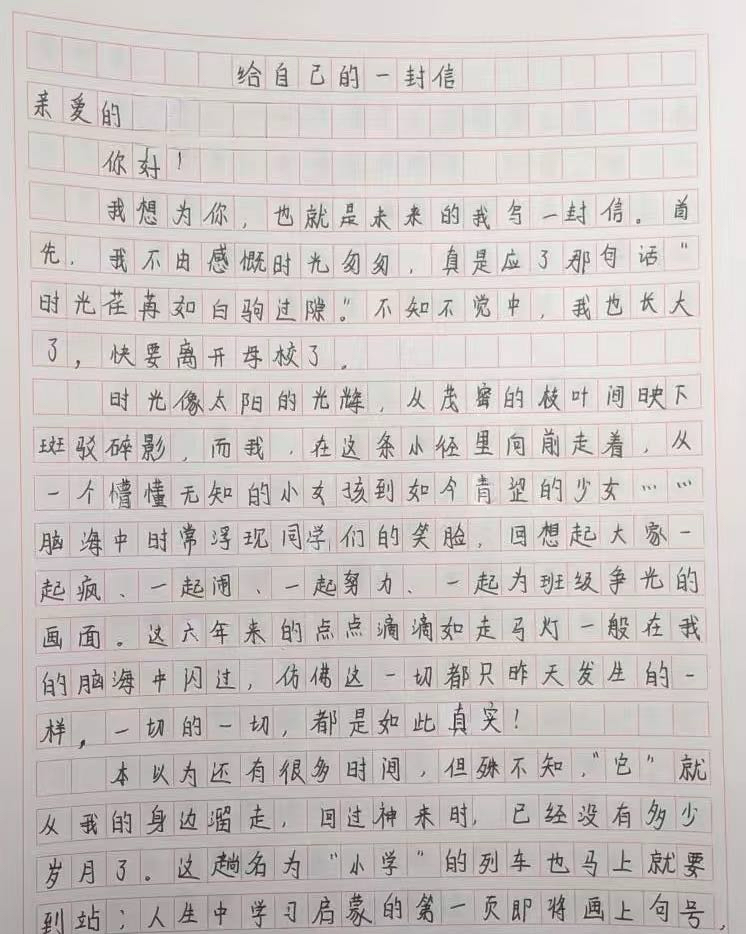 给自己的一封信
亲爱的
你好！
我想为你，也就是未来的我写一封信。首
先，我不由感慨时光匆匆，真是应了那句话“
时光荏苒如白驹过隙。”不知不觉中，我也长大
了，快要离开母校了。
时光像太阳的光辉，从茂密的枝叶间映下
斑驳碎影，而我，在这条小径里向前走着，从
一个懵懂无知的小女孩到如今青涩的少女……
脑海中时常浮现同学们的笑脸，回想起大家一
起疯、一起闹、一起努力、一起为班级争光的
画面。这六年来的点点滴滴如走马灯一般在我
的脑海中闪过，仿佛这一切都只昨天发生的一
样，一切的一切，都是如此真实！
本以为还有很多时间，但殊不知，“它”就
从我的身边溜走，回过神来时，已经没有多少
岁月了。这趟名为“小学”的列车也马上就要
到站；人生中学习启蒙的第一页即将画上句号，